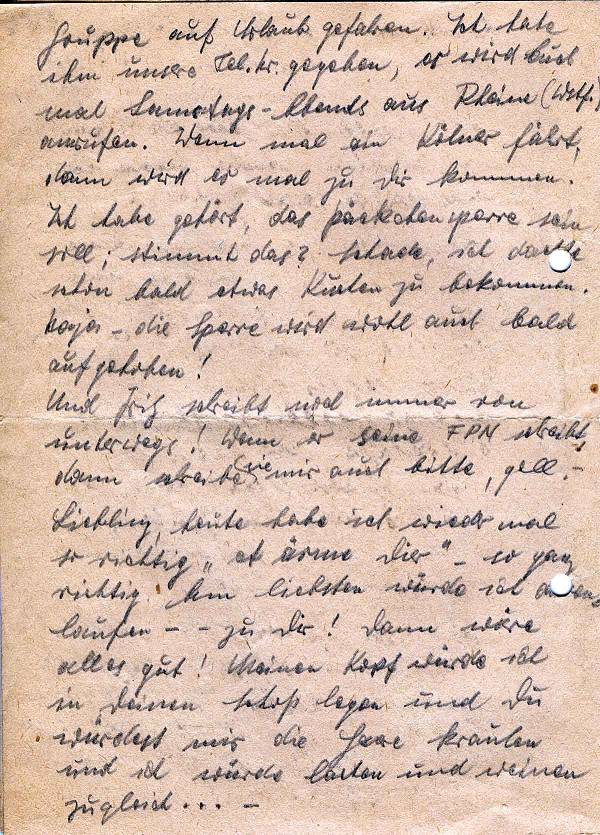 Gruppe auf Urlaub gefahren. Ich habe
ihm unsre Tel. Nr. gegeben, er wird Euch
mal Samstags-Abends aus Rheine (Westf.)
anrufen. Wenn mal ein Kölner fährt,
dann wird er mal zu Dir kommen.
Ich habe gehört, das Päckchensperre sein
soll; stimmt das? Schade, ich dachte
schon bald etwas Kuchen zu bekommen.
Naja – die Sperre wird wohl auch bald
aufgehoben!
Und Fritz schreibt noch immer von
unterwegs! Wenn er seine FPN schreibt,
dann schreibe sie mir auch bitte, gell. –
Liebling, heute habe ich wieder mal
so richtig „et ärme Dier" – so ganz
richtig. Am liebsten würde ich
laufen – – zu Dir! Dann wäre
alles gut! Meinen Kopf würde ich
in Deinen Schoß legen und Du
würdest mir die Haare kraulen
und ich würde lachen und weinen
zugleich... –